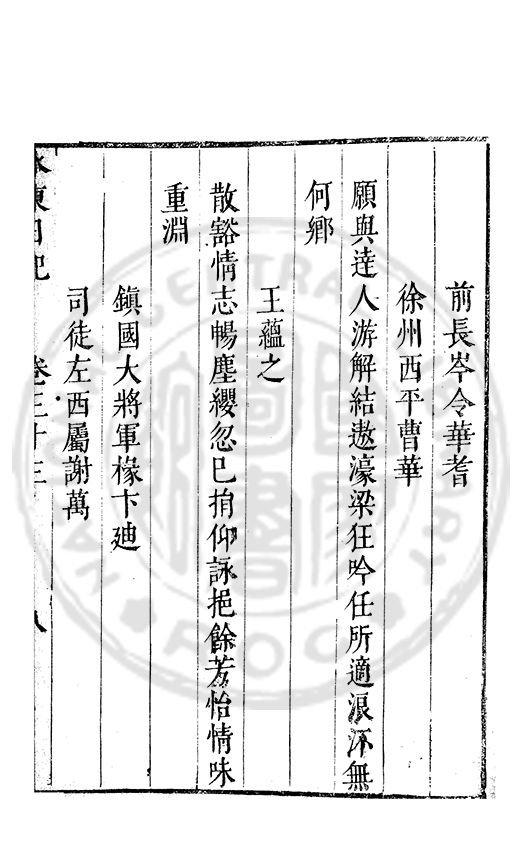 前長岑令華耆
徐州西平曹華
願與達人游解結遨濠梁狂吟任所適浪沠無
何鄉
王蘊之
散豁情志暢塵纓忽已捐仰詠挹餘芳怡情味
重淵
鎮國大將軍椽卞廸
司徒左西屬謝萬
水東日記 卷三十三 八